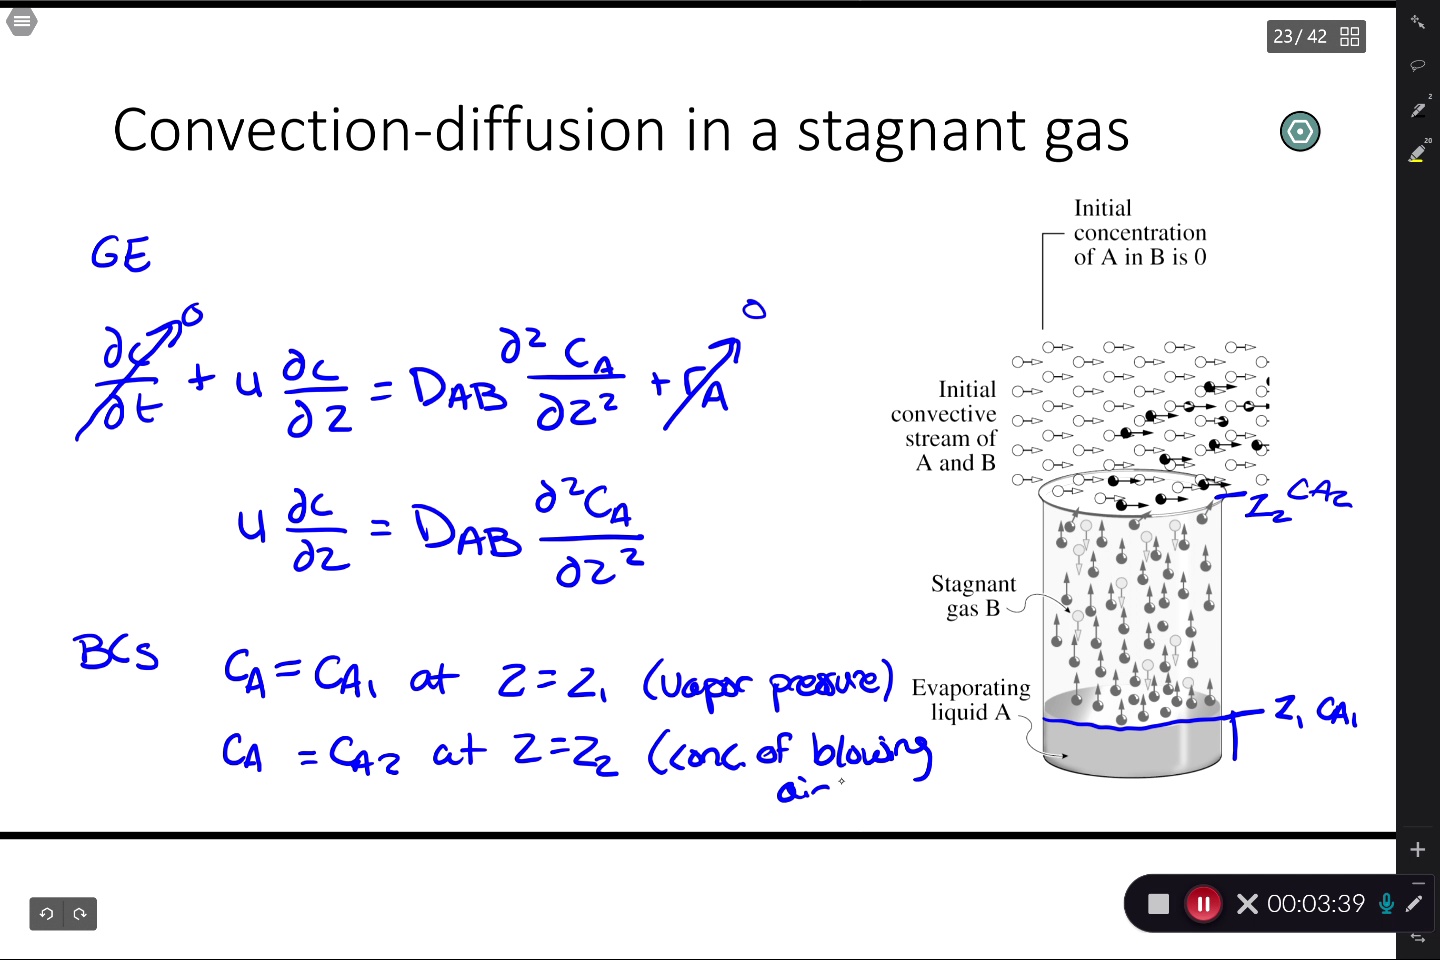 23 / 42
2
20
Convection-diffusion in a stagnant gas
GE
∂c/∂t → 0 + u ∂c/∂z = D_AB ∂² C_A/∂z² + r_A → 0
u ∂c/∂z = D_AB ∂²C_A/∂z²
BCs
C_A = C_A1 at z = z₁ (vapor pressure)
C_A = C_A2 at z = z₂ (conc of blowing
air
Initial
concentration
of A in B is 0
Initial
convective
stream of
A and B
z₂ C_A2
Stagnant
gas B
Evaporating
liquid A
z₁ C_A1
00:03:39